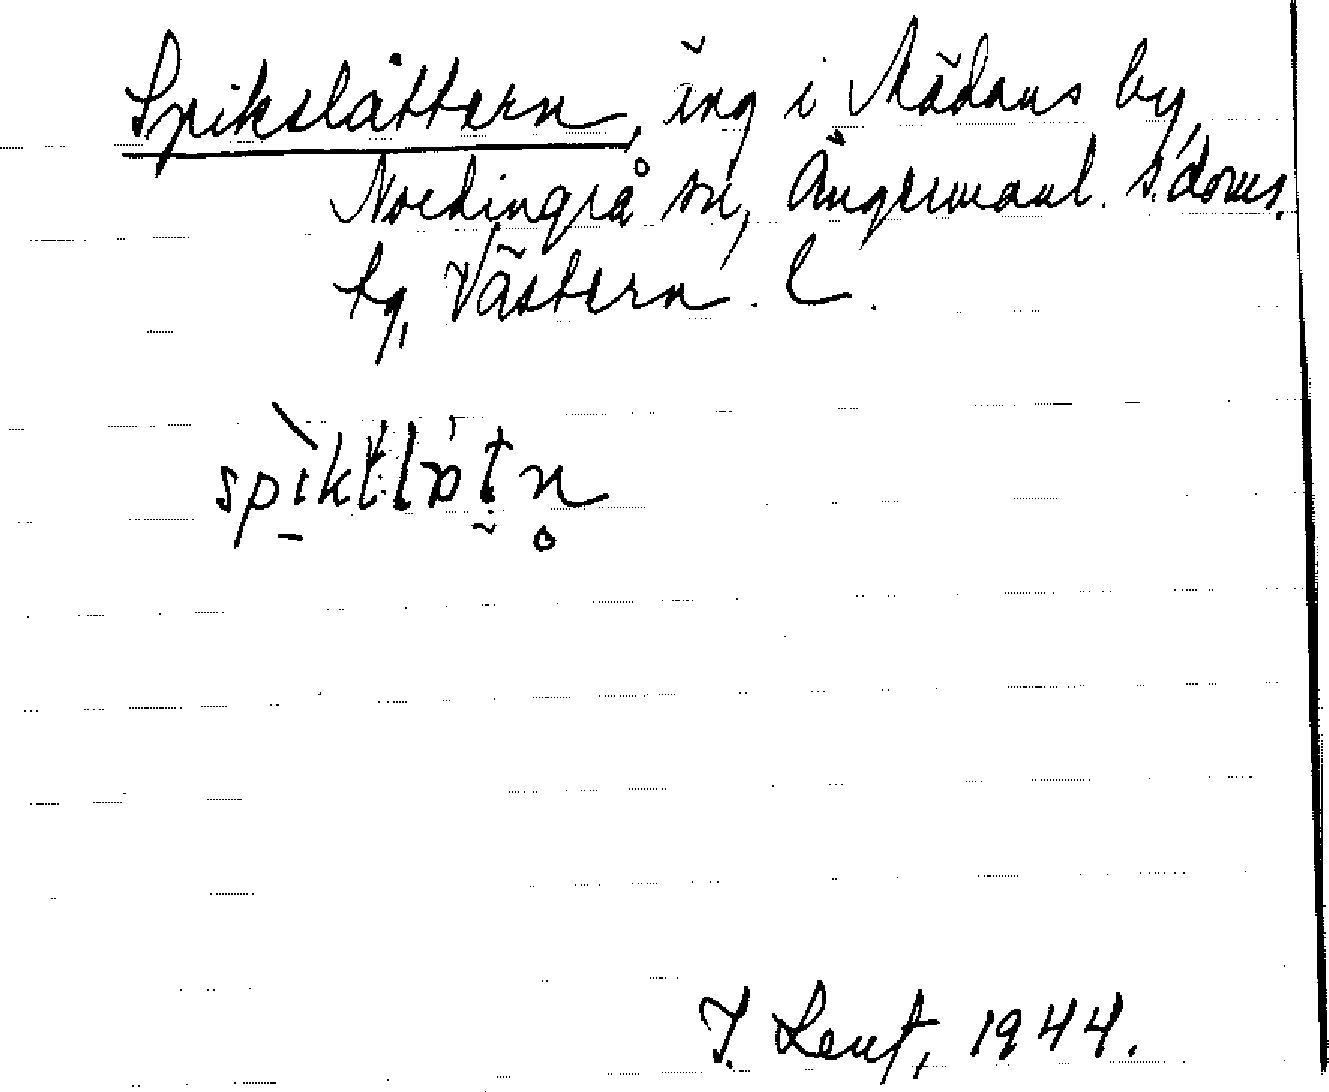 Spikslåttern, äng i Mädans by,
Nordingrå sn, Ångermanl. s. doms.
tg, Västern. l.
1944.